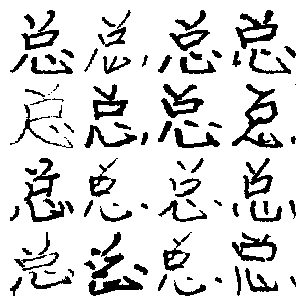 总总总总
总总总总
总总总总
总总总总